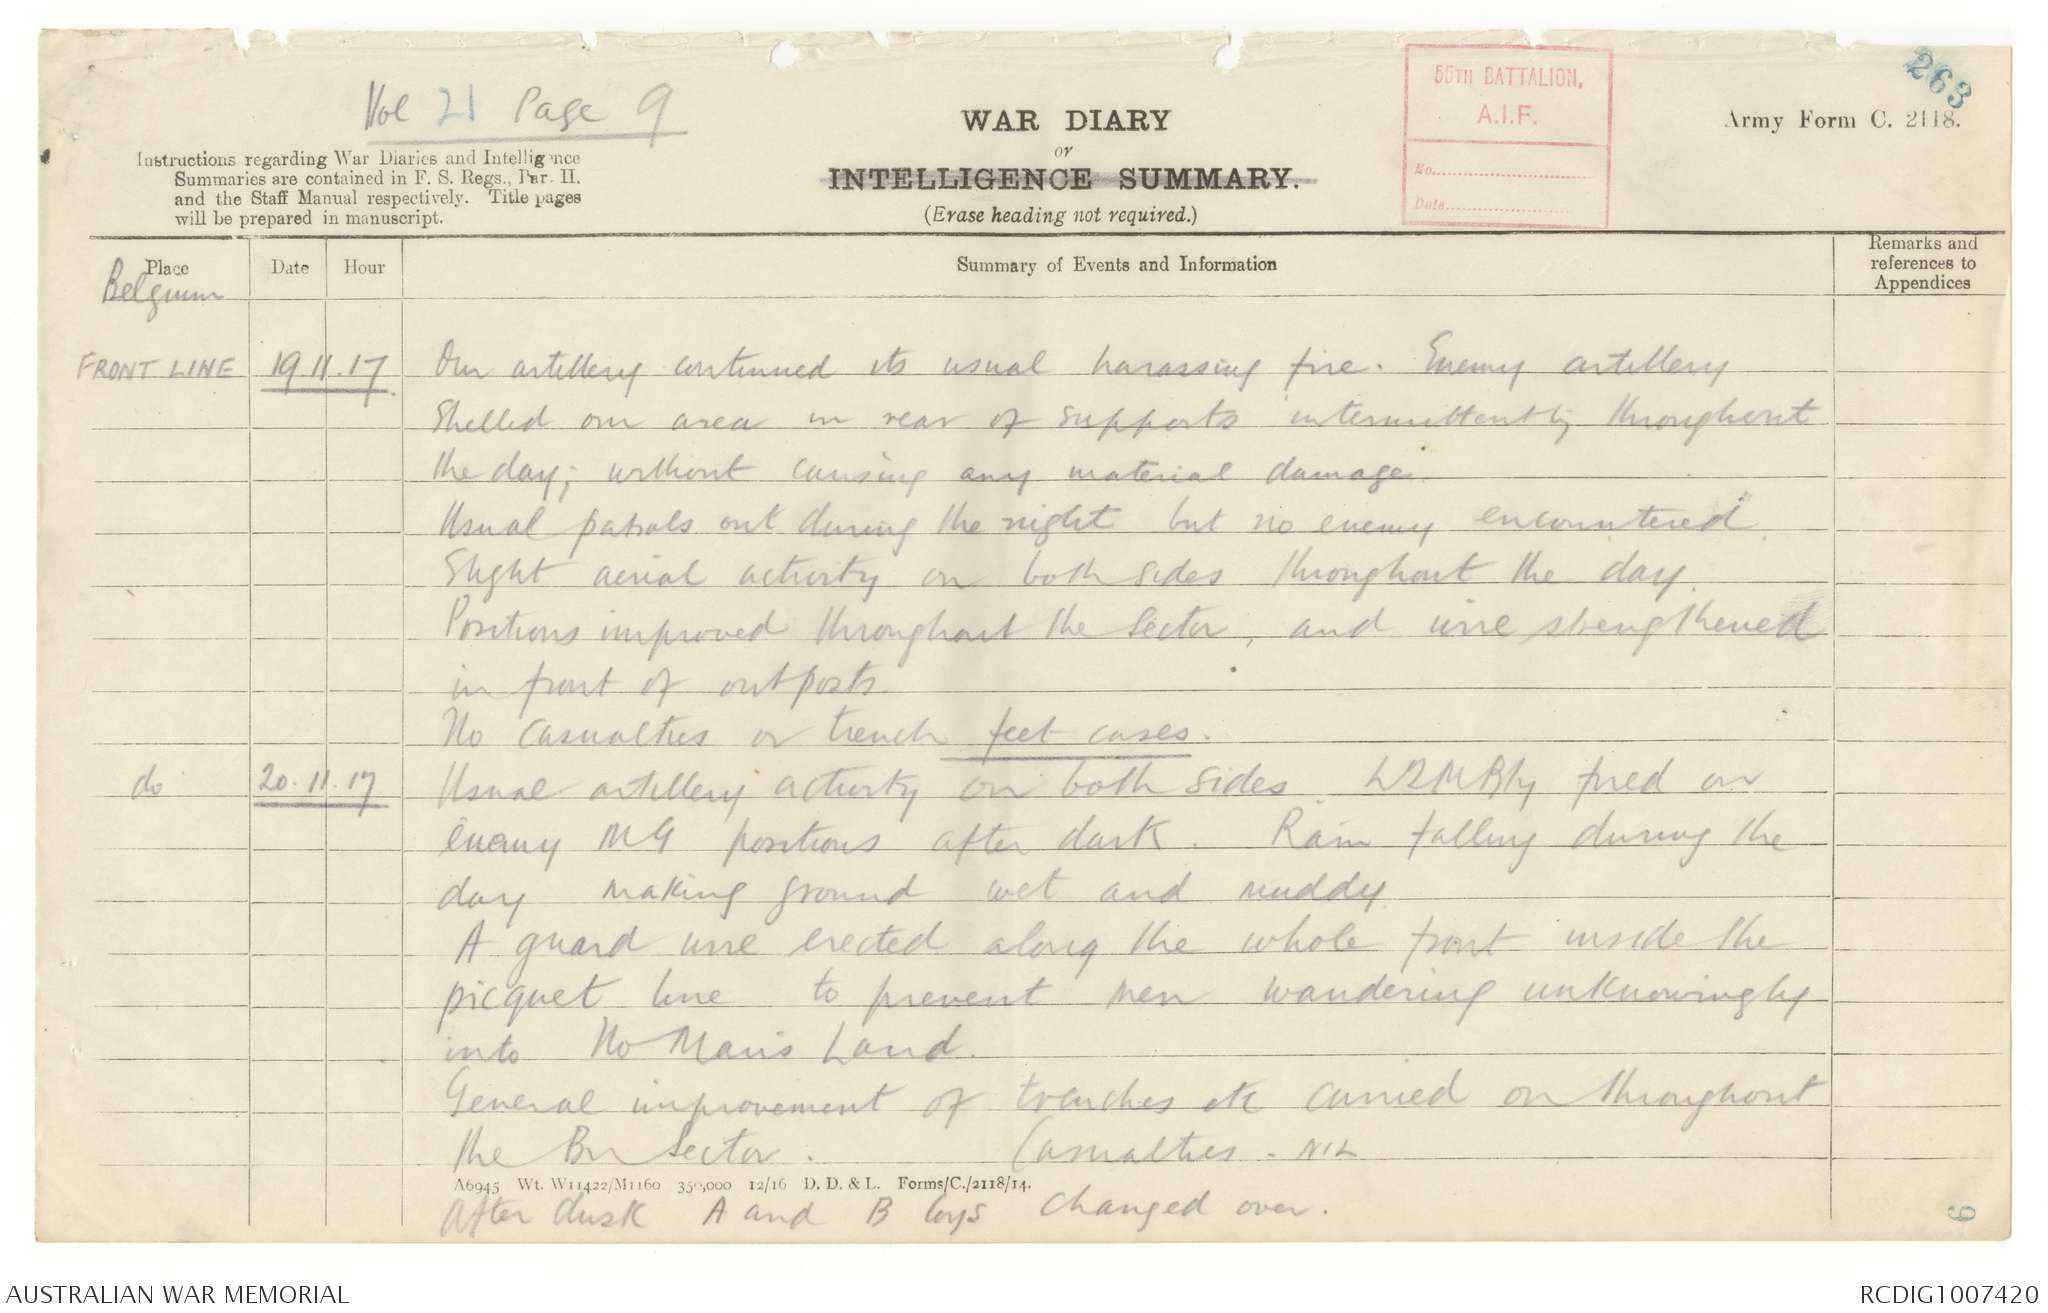 Vol 21 Page 9
WAR DIARY
or
INTELLIGENCE SUMMARY.
(Erase heading not required.)
55TH BATTALION,
A.I.F.
No.
Date
263
Army Form C. 2118.
Instructions regarding War Diaries and Intelligence
Summaries are contained in F. S. Regs., Part II.
and the Staff Manual respectively. Title pages
will be prepared in manuscript.
Place
Date
Hour
Summary of Events and Information
Remarks and
references to
Appendices
Belgium
FRONT LINE 19.11.17 Our artillery continued its usual harassing fire. Enemy artillery
shelled our area in rear of supports intermittently throughout
the day; without causing any material damage.
Usual patrols out during the night but no enemy encountered.
Slight aerial activity on both sides throughout the day.
Positions improved throughout the Sector, and wire strengthened
in front of outposts.
No casualties or trench feet cases.
do 20.11.17 Usual artillery activity on both sides. LTMBty fired on
enemy MG positions after dark. Rain falling during the
day making ground wet and muddy.
A guard wire erected along the whole front inside the
picquet line to prevent men wandering unknowingly
into No Man's Land.
General improvement of trenches etc carried on throughout
the Bn Sector. Casualties - NIL
A6945 Wt. W11422/M1160 350,000 12/16 D. D. & L. Forms/C./2118/14.
After dusk A and B Coys changed over.
9
AUSTRALIAN WAR MEMORIAL
RCDIG1007420